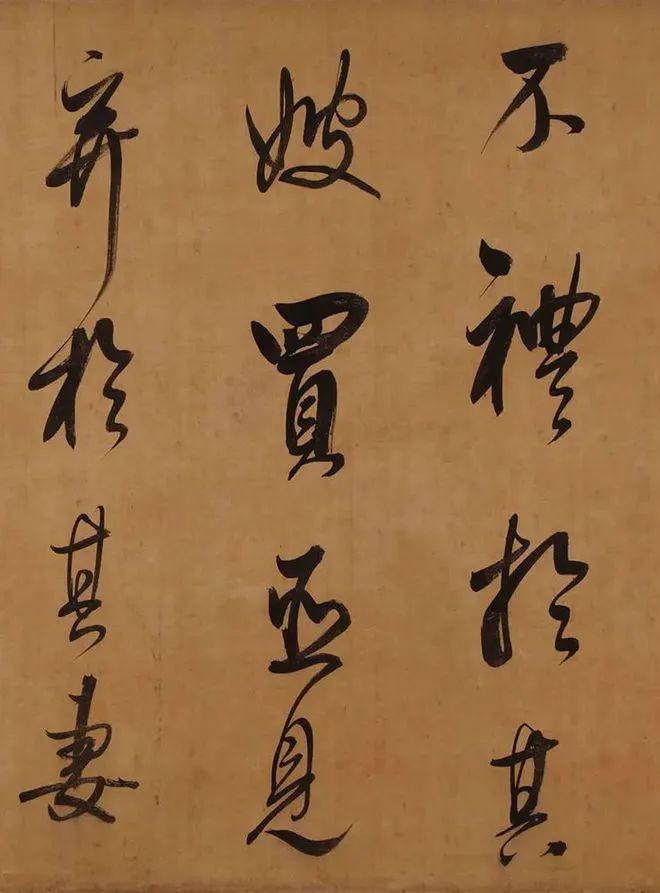 不禮於其
嫂買臣見
棄於其妻